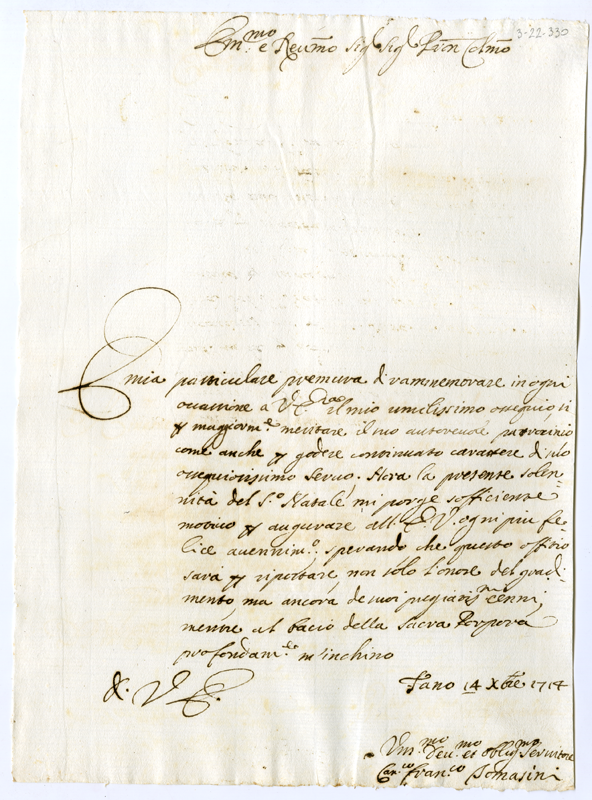 3-22-330
Em.mo e Reu.mo Sig.r Sig.r Prn Colmo
È mia particulare premura di rammemorare in ogni
occasione a V. Em.za il mio umilissimo ossequio si
p maggiorm.te meritare il suo autoreuol patrocinio
come anche p godere continuato carattere di suo
ossequiosissimo seruo. Hora la presente solen-
nità del S.o Natale mi porge sofficiente
motiuo p augurare all' E. V. ogni più fe-
lice auenim.o, sperando che questo offitio
sarà p riportare non solo l'onore del gradi-
mento ma ancora de suoi pregiatis.mi cenni,
mentre al bacio della Sacra Porpora
profondam.te m'inchino
D. V. E.
Fano 14 Xbre 1714
Um.mo Deu.mo et Oblig.mo Seruitore
Can.co Fran.co Tomasini